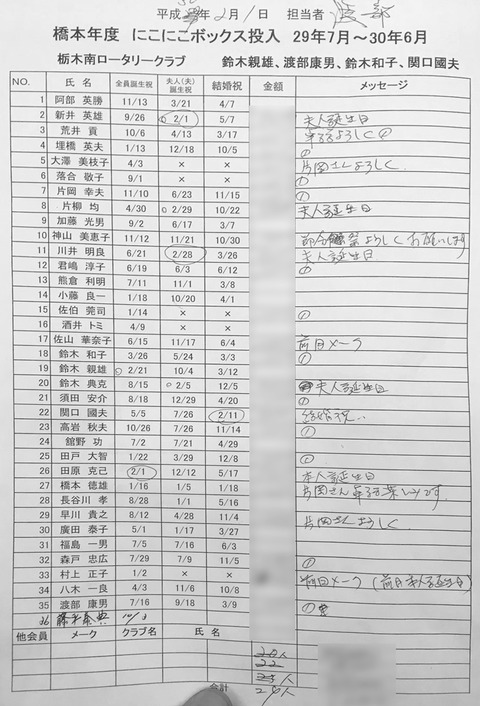 平成 年 2月 1日 担当者 渡部
橋本年度 にこにこボックス投入 29年7月～30年6月
栃木南ロータリークラブ 鈴木親雄、渡部康男、鈴木和子、関口國夫
NO. 氏名 全員誕生祝 夫人(夫)誕生祝 結婚祝 金額 メッセージ
1 阿部 英勝 11/13 3/21 4/7
2 新井 英雄 9/26 ○2/1 5/7 夫人誕生日
3 荒井 貢 10/6 4/13 3/17 よろしく
4 埋橋 英夫 1/13 12/18 10/5 ①
5 大澤 美枝子 4/3 × × 片岡さんよろしく
6 落合 敬子 9/1 × × ①
7 片岡 幸夫 11/10 6/23 11/15 ①
8 片柳 均 4/30 ○2/29 10/22 夫人誕生日
9 加藤 光男 9/2 6/17 3/7
10 神山 美恵子 11/12 11/21 10/30 よろしくお願いします
11 川井 明良 6/21 2/28 3/26 夫人誕生日
12 君嶋 淳子 6/19 6/3 6/12 ①
13 熊倉 利明 7/11 11/1 3/8
14 小藤 良一 1/18 10/20 4/1
15 佐伯 莞司 1/14 × × ①
16 酒井 トミ 4/9 × ×
17 佐山 華奈子 6/15 11/17 6/4 前日メーク
18 鈴木 和子 3/26 5/24 3/3 ①
19 鈴木 親雄 ○2/21 10/4 3/12 ①
20 鈴木 典克 8/15 ○2/5 12/5 夫人誕生日
21 須田 安介 8/18 12/29 4/20 ①
22 関口 國夫 5/5 7/26 2/11 結婚祝
23 高岩 秋夫 10/26 7/26 11/14 ①
24 舘野 功 7/2 7/21 4/29
25 田戸 大智 1/22 3/29 12/8 ①
26 田原 克己 2/1 12/12 5/17 本人誕生日
27 橋本 徳雄 1/16 1/5 1/18 片岡さん 楽しみです
28 長谷川 孝 8/28 1/1 5/16
29 早川 貴之 8/12 4/28 11/4 片岡さんよろしく
30 廣田 泰子 5/1 1/17 3/27
31 福島 一男 7/5 7/16 6/3
32 森戸 忠広 7/29 7/9 11/5 ①
33 村上 正子 1/2 × × 前日メーク
34 八木 一良 4/3 11/6 10/8 ①
35 渡部 康男 7/16 9/18 3/9 ①
36
他会員 メーク クラブ名 氏名
20人
22
25人
合計 26人